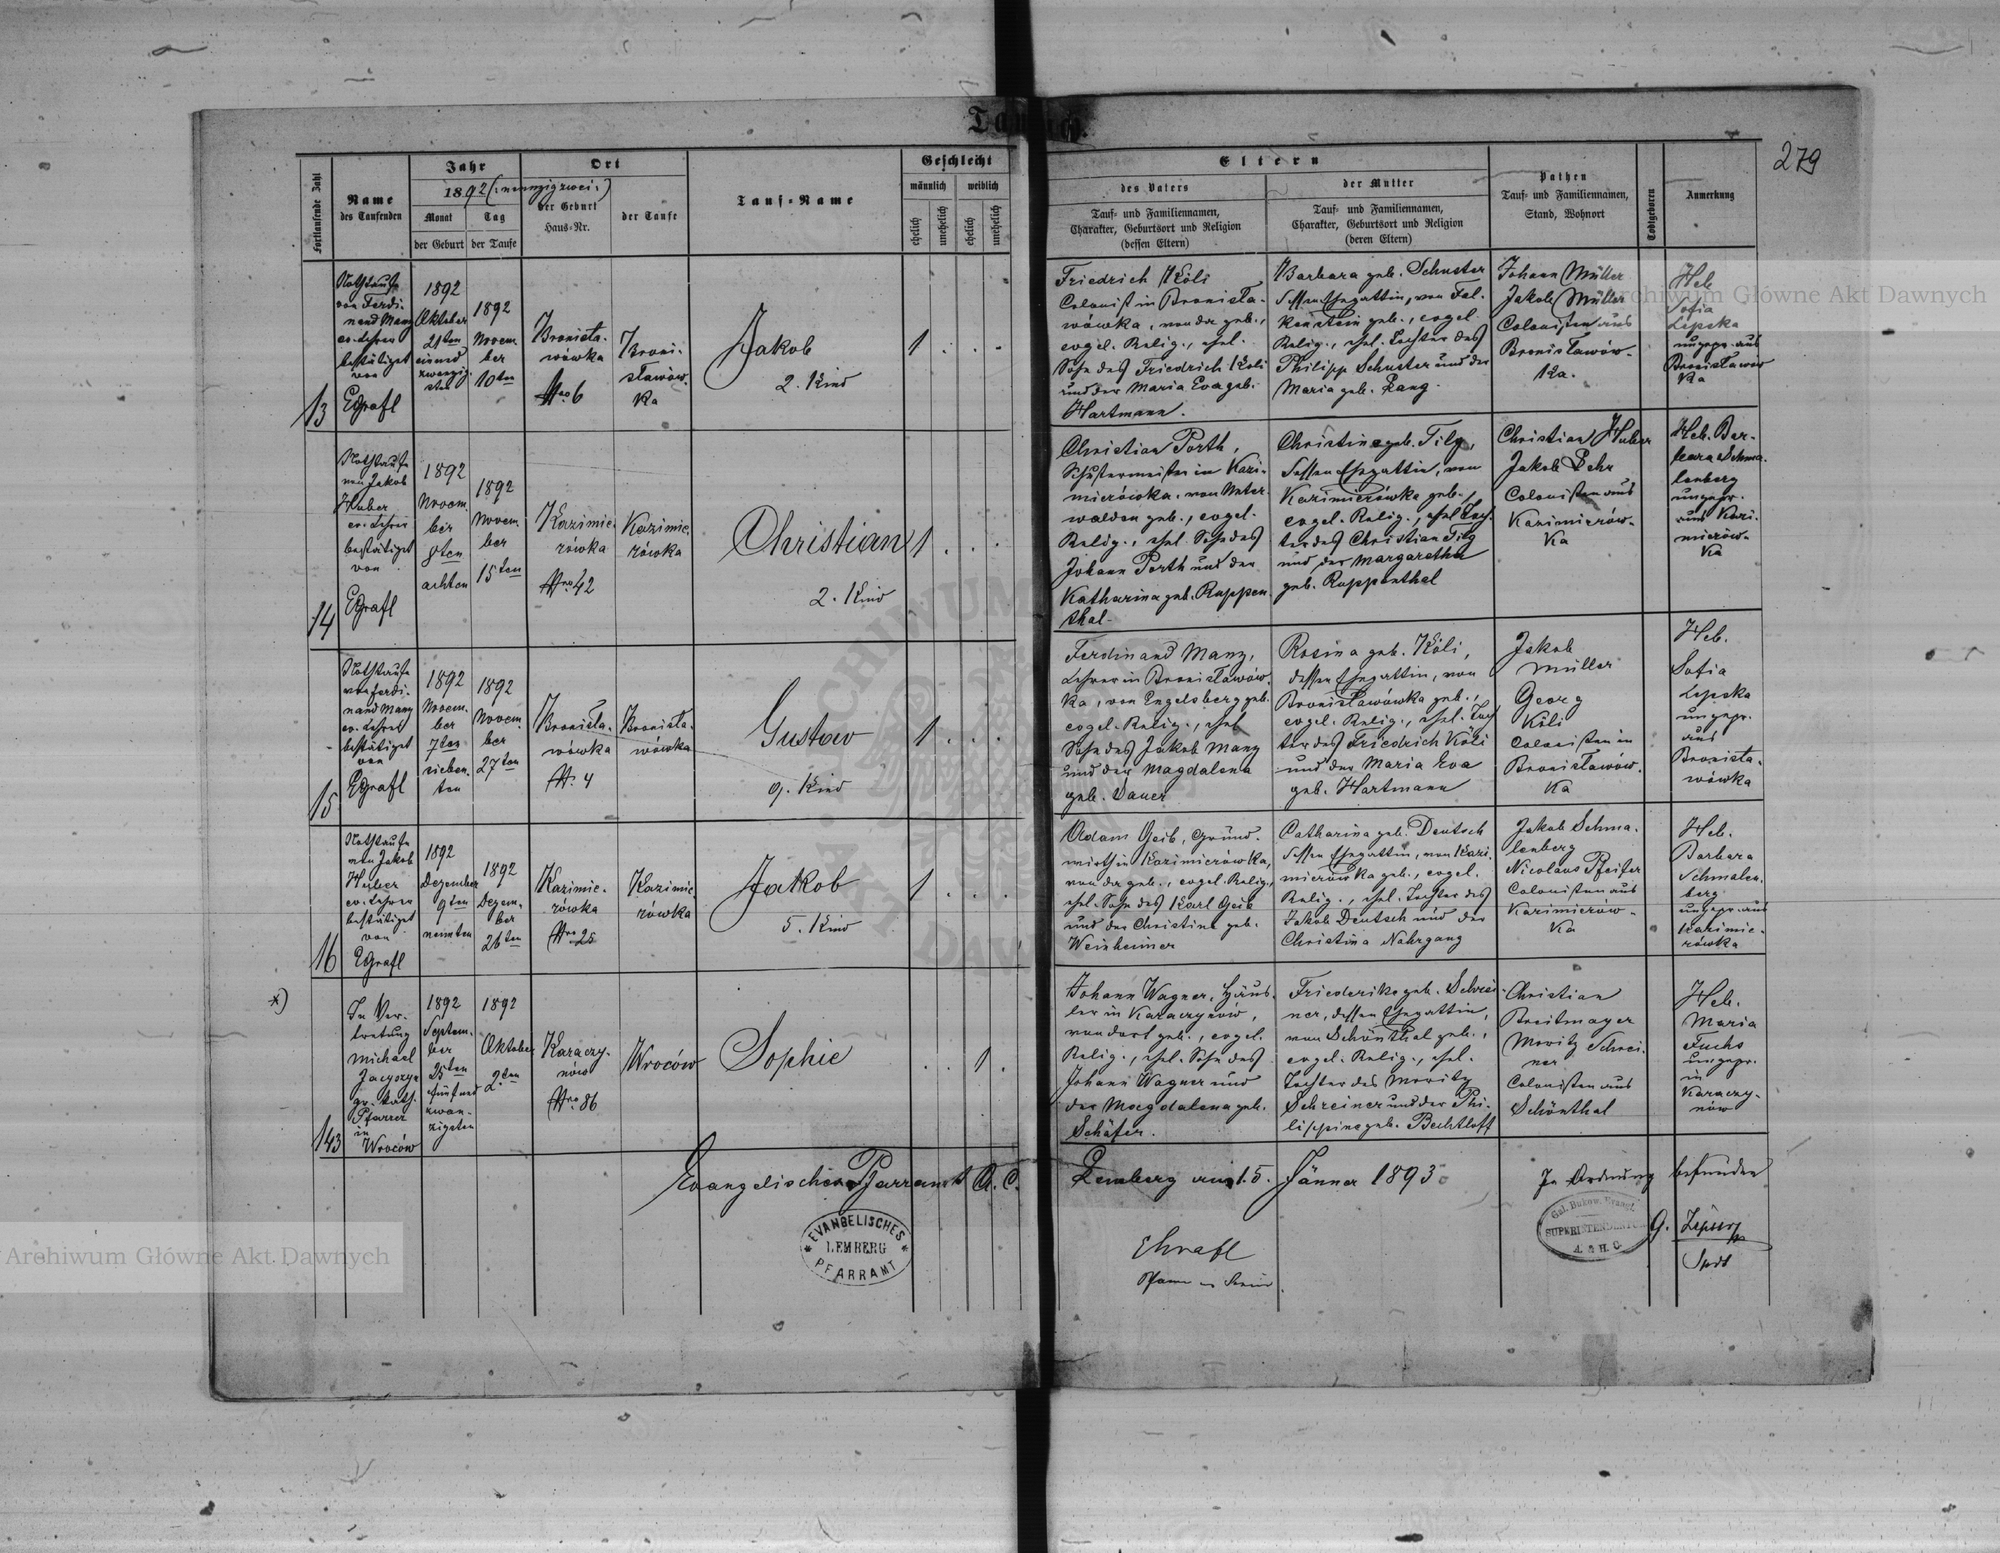 Taufen.
279
Fortlaufende Zahl
Name
des Taufenden
Jahr
1892 (:neunzigzwei:)
Monat
Tag
der Geburt
der Taufe
Ort
der Geburt
Haus-Nr.
der Taufe
Tauf-Name
Geschlecht
männlich
weiblich
ehelich
unehelich
ehelich
unehelich
Eltern
des Vaters
Tauf- und Familiennamen,
Charakter, Geburtsort und Religion
(dessen Eltern)
der Mutter
Tauf- und Familiennamen,
Charakter, Geburtsort und Religion
(deren Eltern)
Pathen
Tauf- und Familiennamen,
Stand, Wohnort
Todtgeboren
Anmerkung
13
Nothtaufe
von Ferdi-
nand Manz
ev. Lehrer
bestätiget
von
EGrafl
1892
Oktober
21ten
einund
zwanzig
sten
1892
Novem-
ber
10ten
Bronisła-
wówka
Nro 6
Broni-
sławów-
ka
Jakob
2. Kind
1
Friedrich Köli
Colonist in Bronisła-
wówka, von da geb.,
evgel. Relig., ehel.
Sohn des Friedrich Köli
und der Maria Eva geb.
Hartmann.
Barbara geb. Schuster
dessen Ehegattin, von Fal-
kenstein geb., evgel.
Relig., ehel. Tochter des
Philipp Schuster und der
Maria geb. Lang.
Johann Müller
Jakob Müller
Colonisten aus
Bronisławów-
ka.
Heb.
Sofia
Lepska
ungepr. aus
Bronisławów
ka
14
Nothtaufe
von Jakob
Huber
ev. Lehrer
bestätiget
von
EGrafl
1892
Novem-
ber
8ten
achten
1892
Novem-
ber
15ten
Kazimie-
rówka
Nro 42
Kazimie-
rówka
Christian
2. Kind
1
Christian Porth,
Schustermeister in Kazi-
mierówka, von Unter-
walden geb., evgel.
Relig., ehel. Sohn des
Johann Porth und der
Katharina geb. Ruppen-
thal.
Christine geb. Tilg,
dessen Ehegattin, von
Kazimierówka geb.,
evgel. Relig., ehel. Toch-
ter des Christian Tilg
und der Margaretha
geb. Ruppenthal
Christian Huber
Jakob Lehr
Colonisten aus
Kazimierów-
ka
Heb. Bar-
bara Schma-
lenberg
ungepr.
aus Kazi-
mierów-
ka
15
Nothtaufe
von Ferdi-
nand Manz
ev. Lehrer
bestätiget
von
EGrafl
1892
Novem-
ber
7ten
sieben-
ten
1892
Novem-
ber
27ten
Bronisła-
wówka
N. 4
Bronisła-
wówka
Gustav
9. Kind
1
Ferdinand Manz,
Lehrer in Bronisławów-
ka, von Engelsberg geb.
evgel. Relig., ehel.
Sohn des Jakob Manz
und der Magdalena
geb. Dauer
Rosina geb. Köli,
dessen Ehegattin, von
Bronisławówka geb.,
evgel. Relig., ehel. Toch
ter des Friedrich Köli
und der Maria Eva
geb. Hartmann
Jakob
Müller
Georg
Köli
Colonisten in
Bronisławów-
ka
Heb.
Sofia
Lepska
ungepr.
aus
Bronisła-
wówka
16
Nothtaufe
von Jakob
Huber
ev. Lehrer
bestätiget
von
EGrafl
1892
Dezember
9ten
neunten
1892
Dezem-
ber
26ten
Kazimie-
rówka
Nro 25
Kazimie-
rówka
Jakob
5. Kind
1
Adam Geib, Grund-
wirth in Kazimierówka,
von da geb., evgel. Relig.,
ehel. Sohn des Karl Geib
und der Christine geb.
Weinheimer
Catharina geb. Deutsch
dessen Ehegattin, von Kazi-
mierówka geb., evgel.
Relig., ehel. Tochter des
Jakob Deutsch und der
Christina Nahrgang
Jakob Schma-
lenberg
Nicolaus Pfeifer
Colonisten aus
Kazimierów-
ka
Heb.
Barbara
Schmalen-
berg
ungepr. aus
Kazimie-
rówka
*)
143
In Ver-
tretung
Michael
gr. kath.
Pfarrer
in
Wroców
1892
Septem-
ber
25ten
fünfund
zwan-
zigsten
1892
Oktober
2ten
Karaczy-
nów
Nro 86
Wroców
Sophie
1
Johann Wagner, Häus-
ler in Karaczynów,
von dort geb., evgel.
Relig., ehel. Sohn des
Johann Wagner und
der Magdalena geb.
Schäfer.
Friederike geb. Schrei-
ner, dessen Ehegattin,
von Schönthal geb.,
evgel. Relig., ehel.
Tochter des Moritz
Schreiner und der Phi-
lippine geb. Bechtloff
Christian
Breitmayer
Moritz Schrei-
ner
Colonisten aus
Schönthal
Heb.
Maria
Fuchs
ungepr.
in
Karaczy-
nów
Evangelisches Pfarramt A. C. Lemberg am 15. Jänner 1893
In Ordnung befunden
EVANGELISCHES
LEMBERG
PFARRAMT
EGrafl
Gal. Bukow. Evangl.
SUPERINTENDENTUR
A. & H. C.
Archiwum Główne Akt Dawnych
Archiwum Główne Akt Dawnych